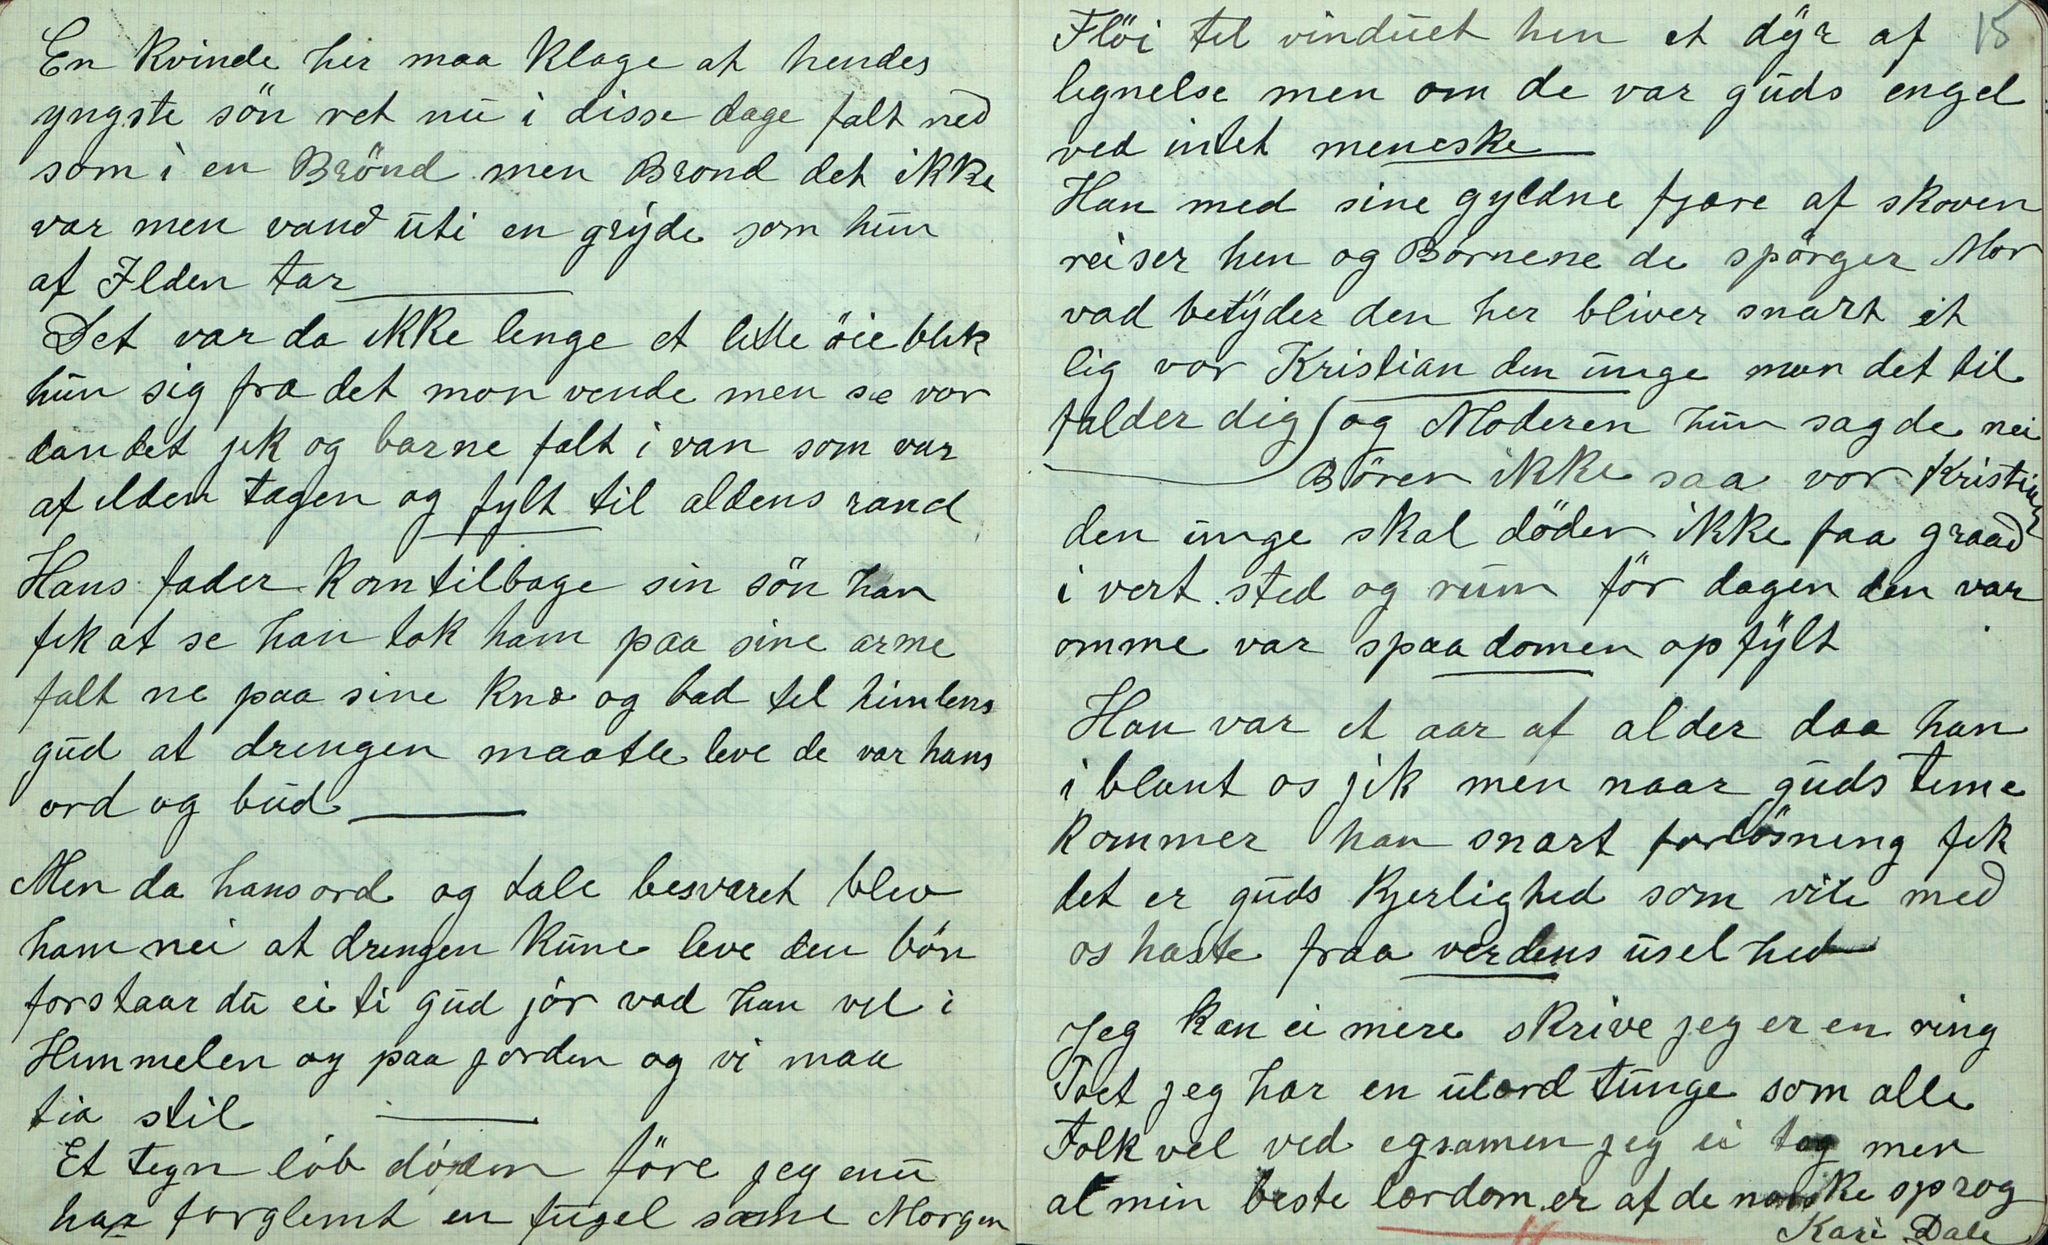 En Kvinde her maa klage at hendes
yngste sön ret nu i disse dage falt ned
som i en Brönd men Brond det ikke
var men vand uti en gryde som hun
af Ilden tar
Det var da ikke lenge et litle öie blik
hun sig fra det mon vende men se vor
dandet jik og barne falt i van som var
af ilden tagen og fylt til aldens rand
Hans fader kom tilbage sin sön han
fik at se han tok ham paa sine arme
falt ne paa sine knæ og bad til himlens
gud at drengen maatte leve de var hans
ord og bud
Men da hans ord og tale besvaret blev
ham nei at drengen kune leve den bön
forstaar du ei ti gud jör vad han vil i
Himmelen og paa jorden og vi maa
tia stil
Et tegn löb döden före jeg enu
har forglemt en fugel same Morgen
15
Flöi til vinduet hen et dyr af
lignelse men om de var guds engel
ved intet meneske
Han med sine gyldne fjære af skoven
reiser hen og Bornene de spörger Mor
vad betyder den her bliver snart et
lig vor Kristian den unge mon det til
falder dig og Moderen hun sagde nei
Bören ikke saa vor Kristian
den unge skal döden ikke faa graad
i vert sted og rum för dagen den var
omme var spaadomen opfylt
Han var et aar af alder daa han
i blant os jik men naar guds time
kommer han snart forlösning fik
det er guds Kjerlighed som vile med
os haste fraa verdens usel hed
Jeg kan ei mere skrive jeg er en ring
Poet jeg har en ulærd tunge som alle
Folk vel ved egsamen jeg ei tog men
al min beste lærdom er af de norske sprog
Kari Dale